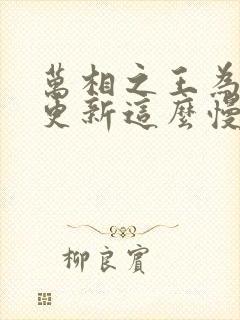 萬相之王為
更新這麼慢
柳良賓